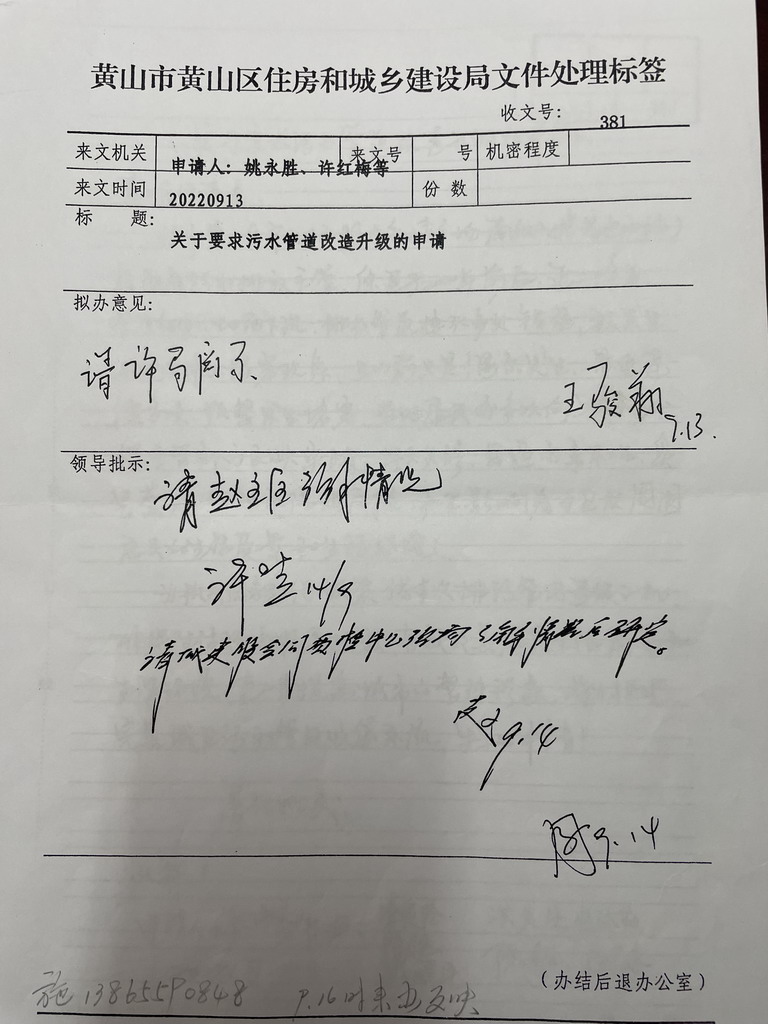 黄山市黄山区住房和城乡建设局文件处理标签
收文号： 381
来文机关 申请人：姚永胜、许红梅等 来文号 号 机密程度
来文时间 20220913 份数
标 题：
关于要求污水管道改造升级的申请
拟办意见：
请许局阅示
王骏翔 9.13.
领导批示：
请赵主任 情况
许 14/9
请城建股会同 中心 后研定。
赵 9.14
周 9.14
（办结后退办公室）
施 13865590848 9.16 来 反映